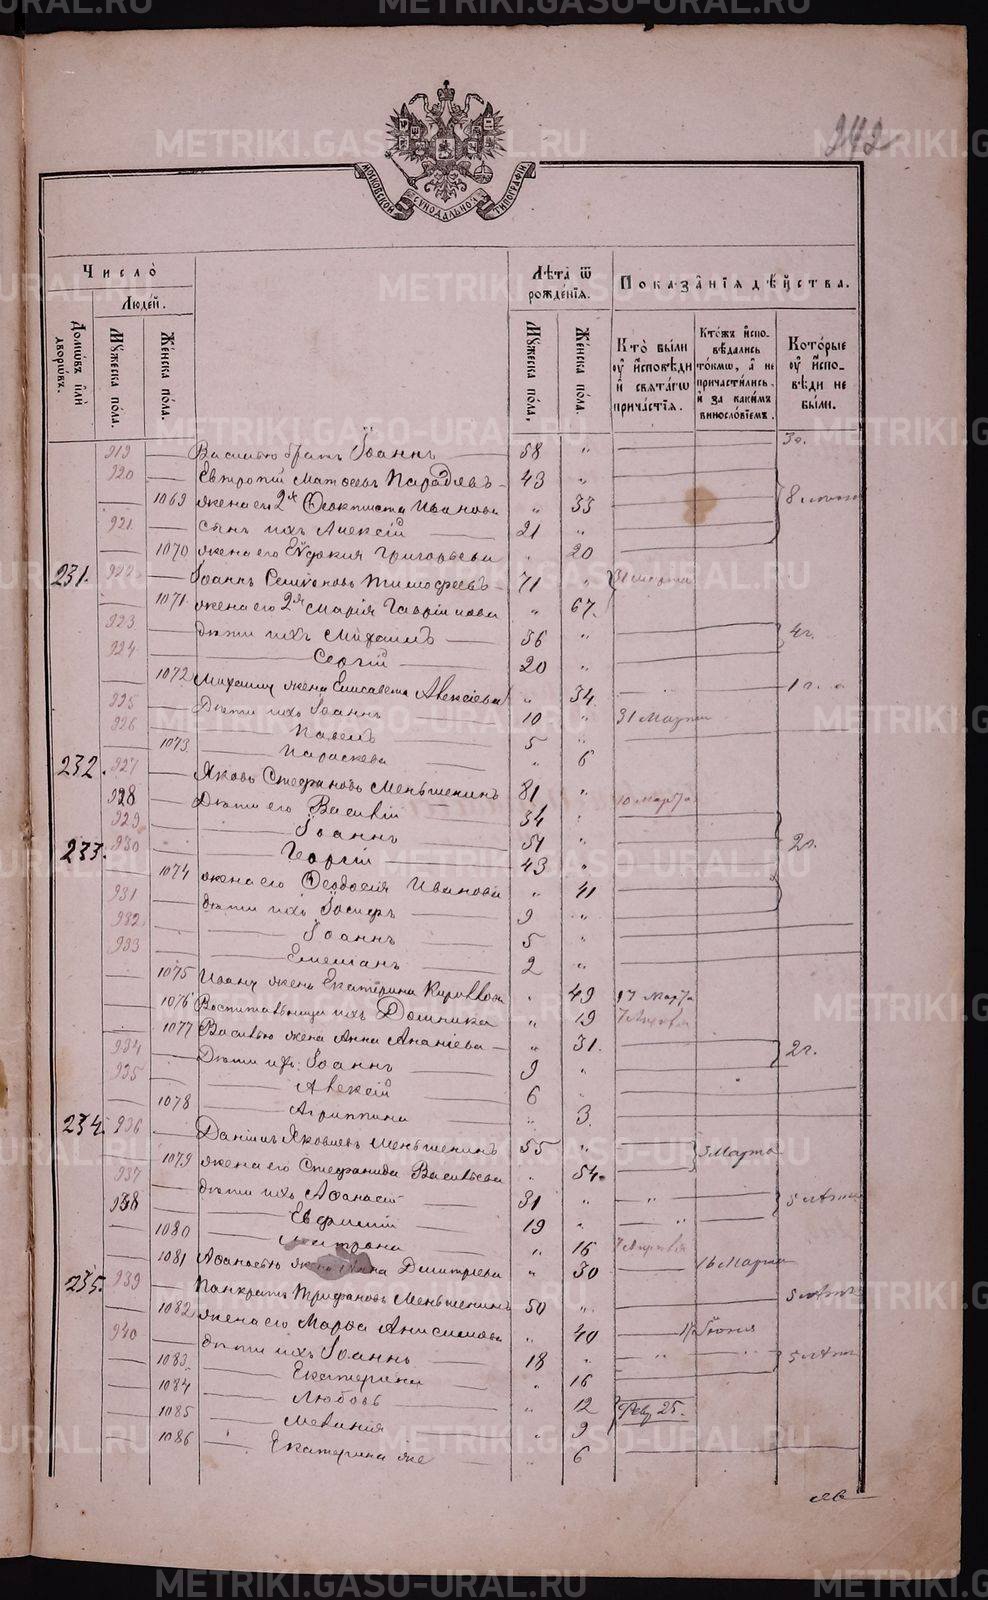 242
МОСКОВСКОЙ СУНОДАЛЬНОЙ ТИПОГРАФIИ
Число̀
Людéй.
Домѡвъ и҆лѝ дворѡвъ.
Мꙋжеска по́ла.
Же́нска по́ла.
Лѣта ѿ рожде́нїѧ.
Мꙋжеска по́ла.
Же́нска по́ла.
Показа̂нїѧ дѣ́йства.
Кто̀ бы́ли ᲂу҆ и҆сповѣди и҆ свѧта́гѡ прича́стїѧ.
Кто́жъ и҆спо-вѣдались то́кмѡ, а҆ не причасти́лись, и҆ за каки́мъ винословїемъ.
Кото́рые ᲂу҆ и҆спо-вѣди не бы́ли.
919 Василью братъ Іоаннъ 58 " 3 г.
920 Евтропій Матѳеевъ Парадѣевъ 43 "
1069 жена его 2я Ѳеоктиста Иванова " 33 8
921 сынъ ихъ Алексій 21 "
1070 жена его Евдокия Григорьева " 20
231. 922 Іоаннъ Семіоновъ Тимофеевъ 71 " 31 марта
1071 жена его 2я Марія Гаврiилова " 67.
923 дѣти ихъ Михаилъ 36 " 4 г.
924 Сергій 20 "
1072 Михаилу жена Елисавета Алексіева " 34. 1 г.
925 Дѣти ихъ Іоаннъ 10 " 31 Марта
926 Павелъ 5 "
1073 Параскева " 6
232. 927 Яковъ Стефановъ Меньшенинъ 81 " 10 Марта
928 Дѣти его Василій 34 "
929 Іоаннъ 51 " 2 г.
233. 930 Георгій 43 "
1074 жена его Ѳеодосия Иванова " 41
931 дѣти ихъ Іосифъ 9 "
932 Іоаннъ 5 "
933 Емелианъ 2 "
1075 Ивану жена Екатерина Кириллова " 49 17 Марта
1076 Воспитанница ихъ Домника " 19 7 Апрѣля
1077 Василью жена Анна Ананіева " 31. 2 г.
934 Дѣти ихъ: Іоаннъ 9 "
935 Алексій 6 "
1078 Агриппина " 3.
234. 936 Даніилъ Яковлевъ Меньшенинъ 55 " 3 Марта
1079 жена его Стефанида Васильева " 54.
937 дѣти ихъ Аѳанасій 31 " " 5 лѣтъ
938 Евфимій 19 " "
1080 " 16 7 Апрѣля
1081 Аѳанасью жена Анна Дмитріева " 30 16 Марта
235. 939 Панкратъ Трифановъ Меньшенинъ 50 " 5 лѣтъ
1082 жена его Марѳа Анисимова " 40 Іюня
940 дѣти ихъ Іоаннъ 18 " " " 5 лѣтъ
1083 Екатерина " 16
1084 Любовь " 12 Фев. 25.
1085 Меланія " 9
1086 Екатерина же 6